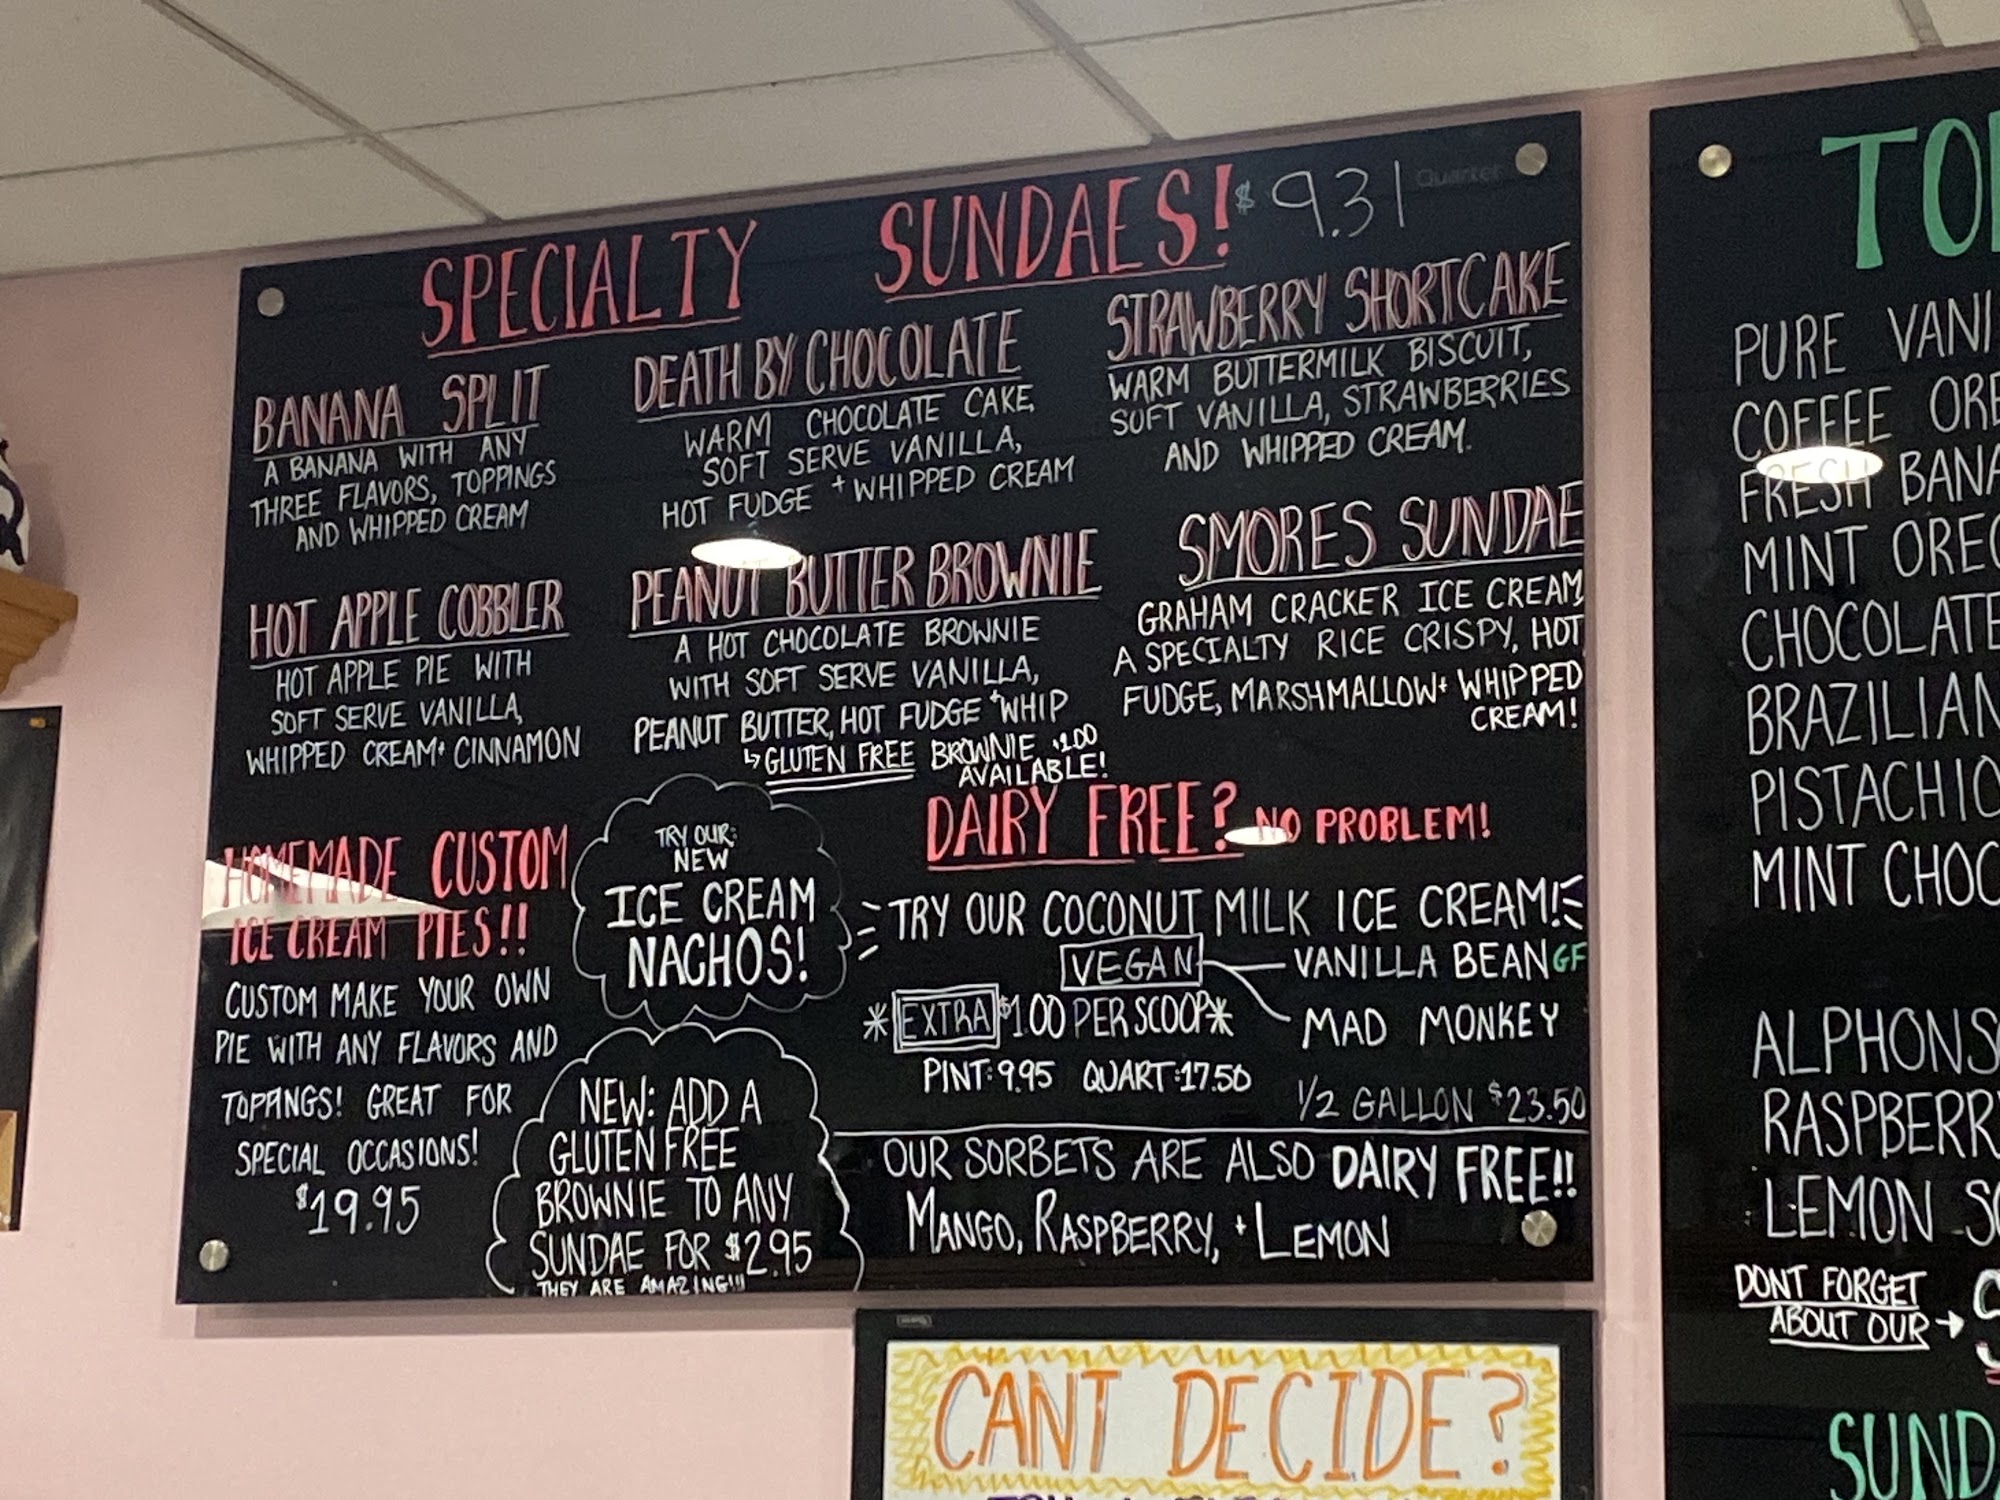 SPECIALTY SUNDAES! $9.31
Quartet
BANANA SPLIT
A BANANA WITH ANY
THREE FLAVORS, TOPPINGS
AND WHIPPED CREAM
DEATH BY CHOCOLATE
WARM CHOCOLATE CAKE,
SOFT SERVE VANILLA,
HOT FUDGE + WHIPPED CREAM
STRAWBERRY SHORTCAKE
WARM BUTTERMILK BISCUIT,
SOFT VANILLA, STRAWBERRIES
AND WHIPPED CREAM.
HOT APPLE COBBLER
HOT APPLE PIE WITH
SOFT SERVE VANILLA,
WHIPPED CREAM + CINNAMON
PEANUT BUTTER BROWNIE
A HOT CHOCOLATE BROWNIE
WITH SOFT SERVE VANILLA,
PEANUT BUTTER, HOT FUDGE + WHIP
↳ GLUTEN FREE BROWNIE $2.00
AVAILABLE!
SMORES SUNDAE
GRAHAM CRACKER ICE CREAM,
A SPECIALTY RICE CRISPY, HOT
FUDGE, MARSHMALLOW + WHIPPED
CREAM!
HOMEMADE CUSTOM
ICE CREAM PIES!!
CUSTOM MAKE YOUR OWN
PIE WITH ANY FLAVORS AND
TOPPINGS! GREAT FOR
SPECIAL OCCASIONS!
$19.95
TRY OUR:
NEW
ICE CREAM
NACHOS!
NEW: ADD A
GLUTEN FREE
BROWNIE TO ANY
SUNDAE FOR $2.95
THEY ARE AMAZING!!!
DAIRY FREE? NO PROBLEM!
TRY OUR COCONUT MILK ICE CREAM!
VEGAN VANILLA BEAN GF
*EXTRA $1.00 PER SCOOP* MAD MONKEY
PINT: 9.95 QUART: 17.50
1/2 GALLON $23.50
OUR SORBETS ARE ALSO DAIRY FREE!!
MANGO, RASPBERRY, + LEMON
CANT DECIDE?
TO
PURE VANI
COFFEE ORE
FRESH BANA
MINT OREO
CHOCOLATE
BRAZILIAN
PISTACHIO
MINT CHOC
ALPHONS
RASPBERRY
LEMON SO
DONT FORGET
ABOUT OUR →
SUND